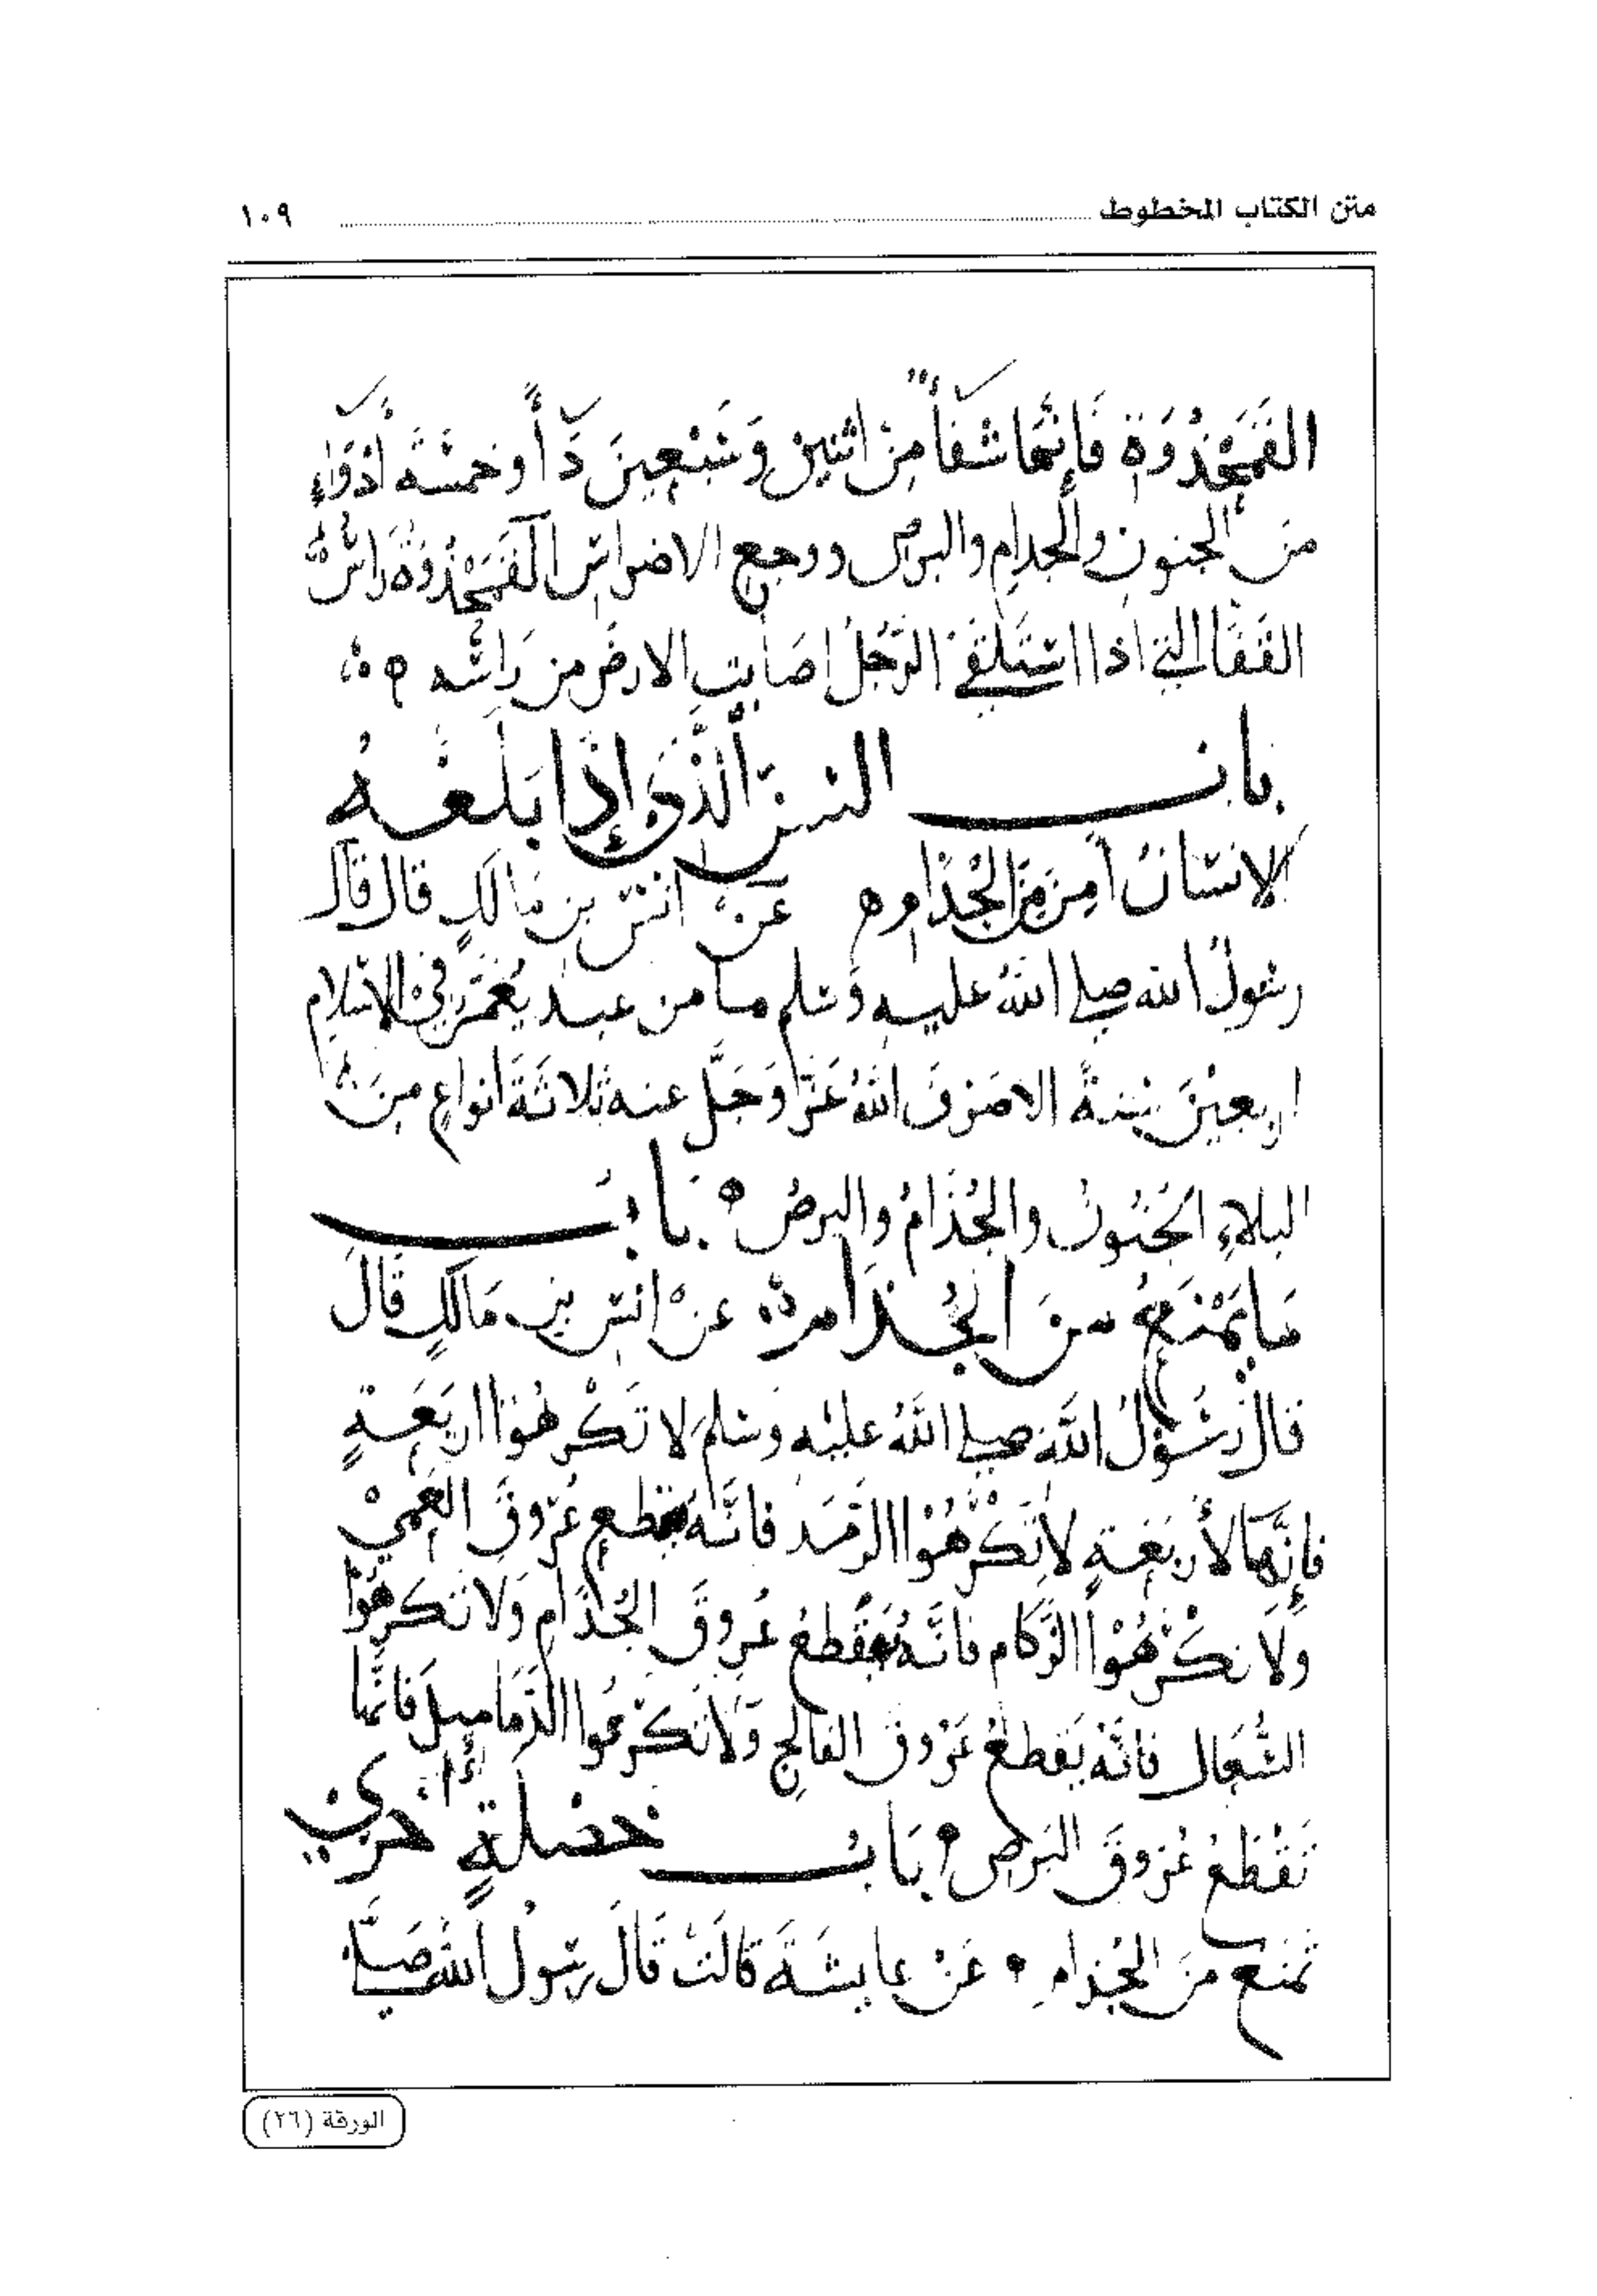 متن الكتاب المخطوط ١٠٩
القَمَحْدُوَةِ فَإِنَّهَا شَفَأٌ مِنْ اثنين وَسَبْعِينَ دَأً وخمسَةَ أدْوَاءٍ
من الجنون والجدام والبرص ووجع الاضراس القَمَحْدُوَةُ رَاسُ
القَفَا التي اذا استلقى الرَّجُلُ اصَابت الارضُ من رَاسه
بابُ السِنِّ الَّذِي إِذَا بَلَغَهُ
الانسَانُ أمِنَ مِنَ الجُذَامِ عَنْ انسِ بن مَالكٍ قال قال
رسُولُ الله صلى اللهُ عليه وَسلم ما من عبد يُعَمَّرُ فِي الاسلام
اربعيْنَ سَنةً الا صَرَفَ اللهُ عَزَّ وَجَلَّ عنه ثلاثَةَ أنواعٍ منَ
البلاءِ الجُنُونُ والجُذَامُ والبرصُ بَابُ
مَا يَمْنَعُ منَ الجُذَامِ عنْ انس بن مَالكٍ قَالَ
قالَ رَسُوْلُ اللَّه صلى اللَّهُ عليْه وسلمَ لا تَكْرهُوا اربَعَةٍ
فإِنَّهَا لأربَعَةٍ لاتَكْرَهُوْا الرَّمَدَ فانَّهُ يقطع عُرُوقَ العَمِيْ
وَلَا تكْرَهُوْا الزُّكام فانَّهُ يَقْطعُ عُرُوقَ الجُذَام وَلَا تَكرهُوْا
السُّعَال فانَّه يَقطعُ عُرُوقَ الفالجِ وَلَا تَكْرهُوا الدَّمَاميلَ فَانَّهَا
تَقْطَعُ عُرُوقَ البَرصِ بَابُ خصْلَةٍ أُخرى
تَمنَع منَ الجُذامِ عَنْ عايشَةَ قالَتْ قَالَ رسُولُ الله صَلَّى
الورقة (٢٦)